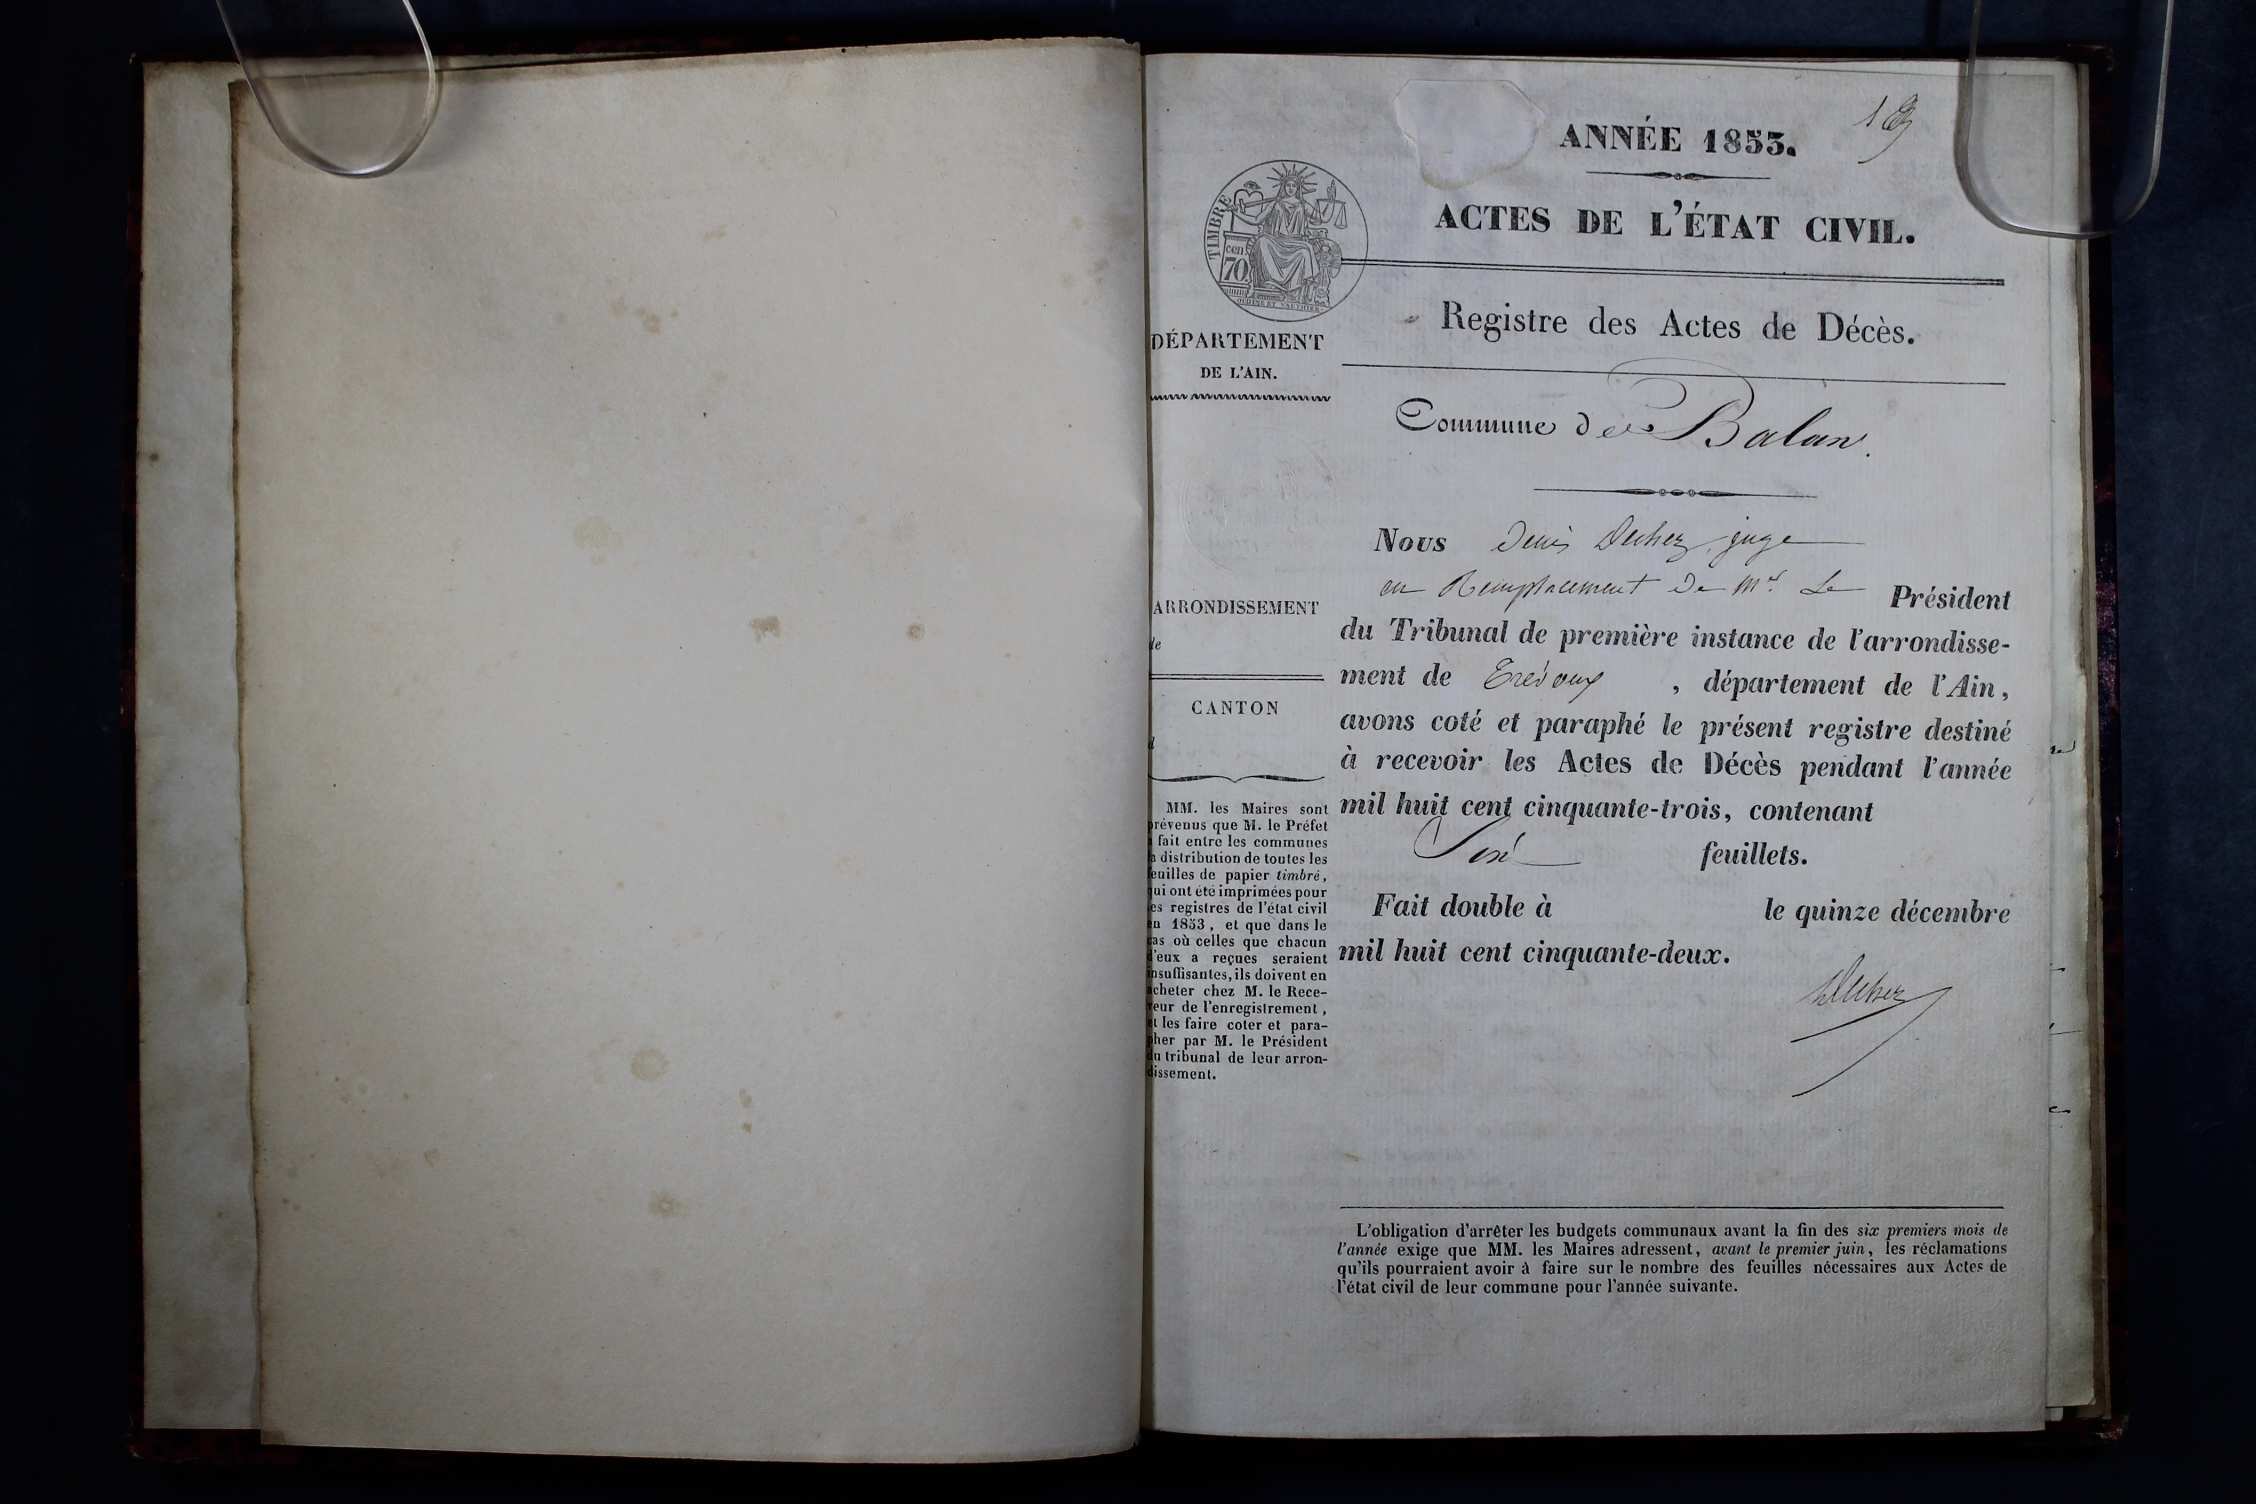 ANNÉE 1853.
ACTES DE L'ÉTAT CIVIL.
TIMBRE
cen
70
OUDINE ET VAUTHIER
Registre des Actes de Décès.
DÉPARTEMENT
DE L'AIN.
Commune de Balan.
Nous Denis Dechez, juge
en Remplacement de Mr. Le Président
ARRONDISSEMENT
de
du Tribunal de première instance de l'arrondisse-
ment de Trévoux, département de l'Ain,
CANTON
d
avons coté et paraphé le présent registre destiné
à recevoir les Actes de Décès pendant l'année
mil huit cent cinquante-trois, contenant
feuillets.
Fait double à le quinze décembre
mil huit cent cinquante-deux.
Dechez
MM. les Maires sont
prévenus que M. le Préfet
a fait entre les communes
la distribution de toutes les
feuilles de papier timbré,
qui ont été imprimées pour
les registres de l'état civil
en 1853, et que dans le
cas où celles que chacun
d'eux a reçues seraient
insuffisantes, ils doivent en
acheter chez M. le Rece-
veur de l'enregistrement,
et les faire coter et para-
pher par M. le Président
du tribunal de leur arron-
dissement.
L'obligation d'arrêter les budgets communaux avant la fin des six premiers mois de
l'année exige que MM. les Maires adressent, avant le premier juin, les réclamations
qu'ils pourraient avoir à faire sur le nombre des feuilles nécessaires aux Actes de
l'état civil de leur commune pour l'année suivante.